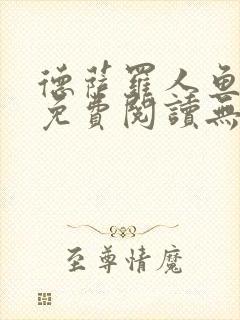 德薩羅人魚
免費閱讀無
至尊情魔